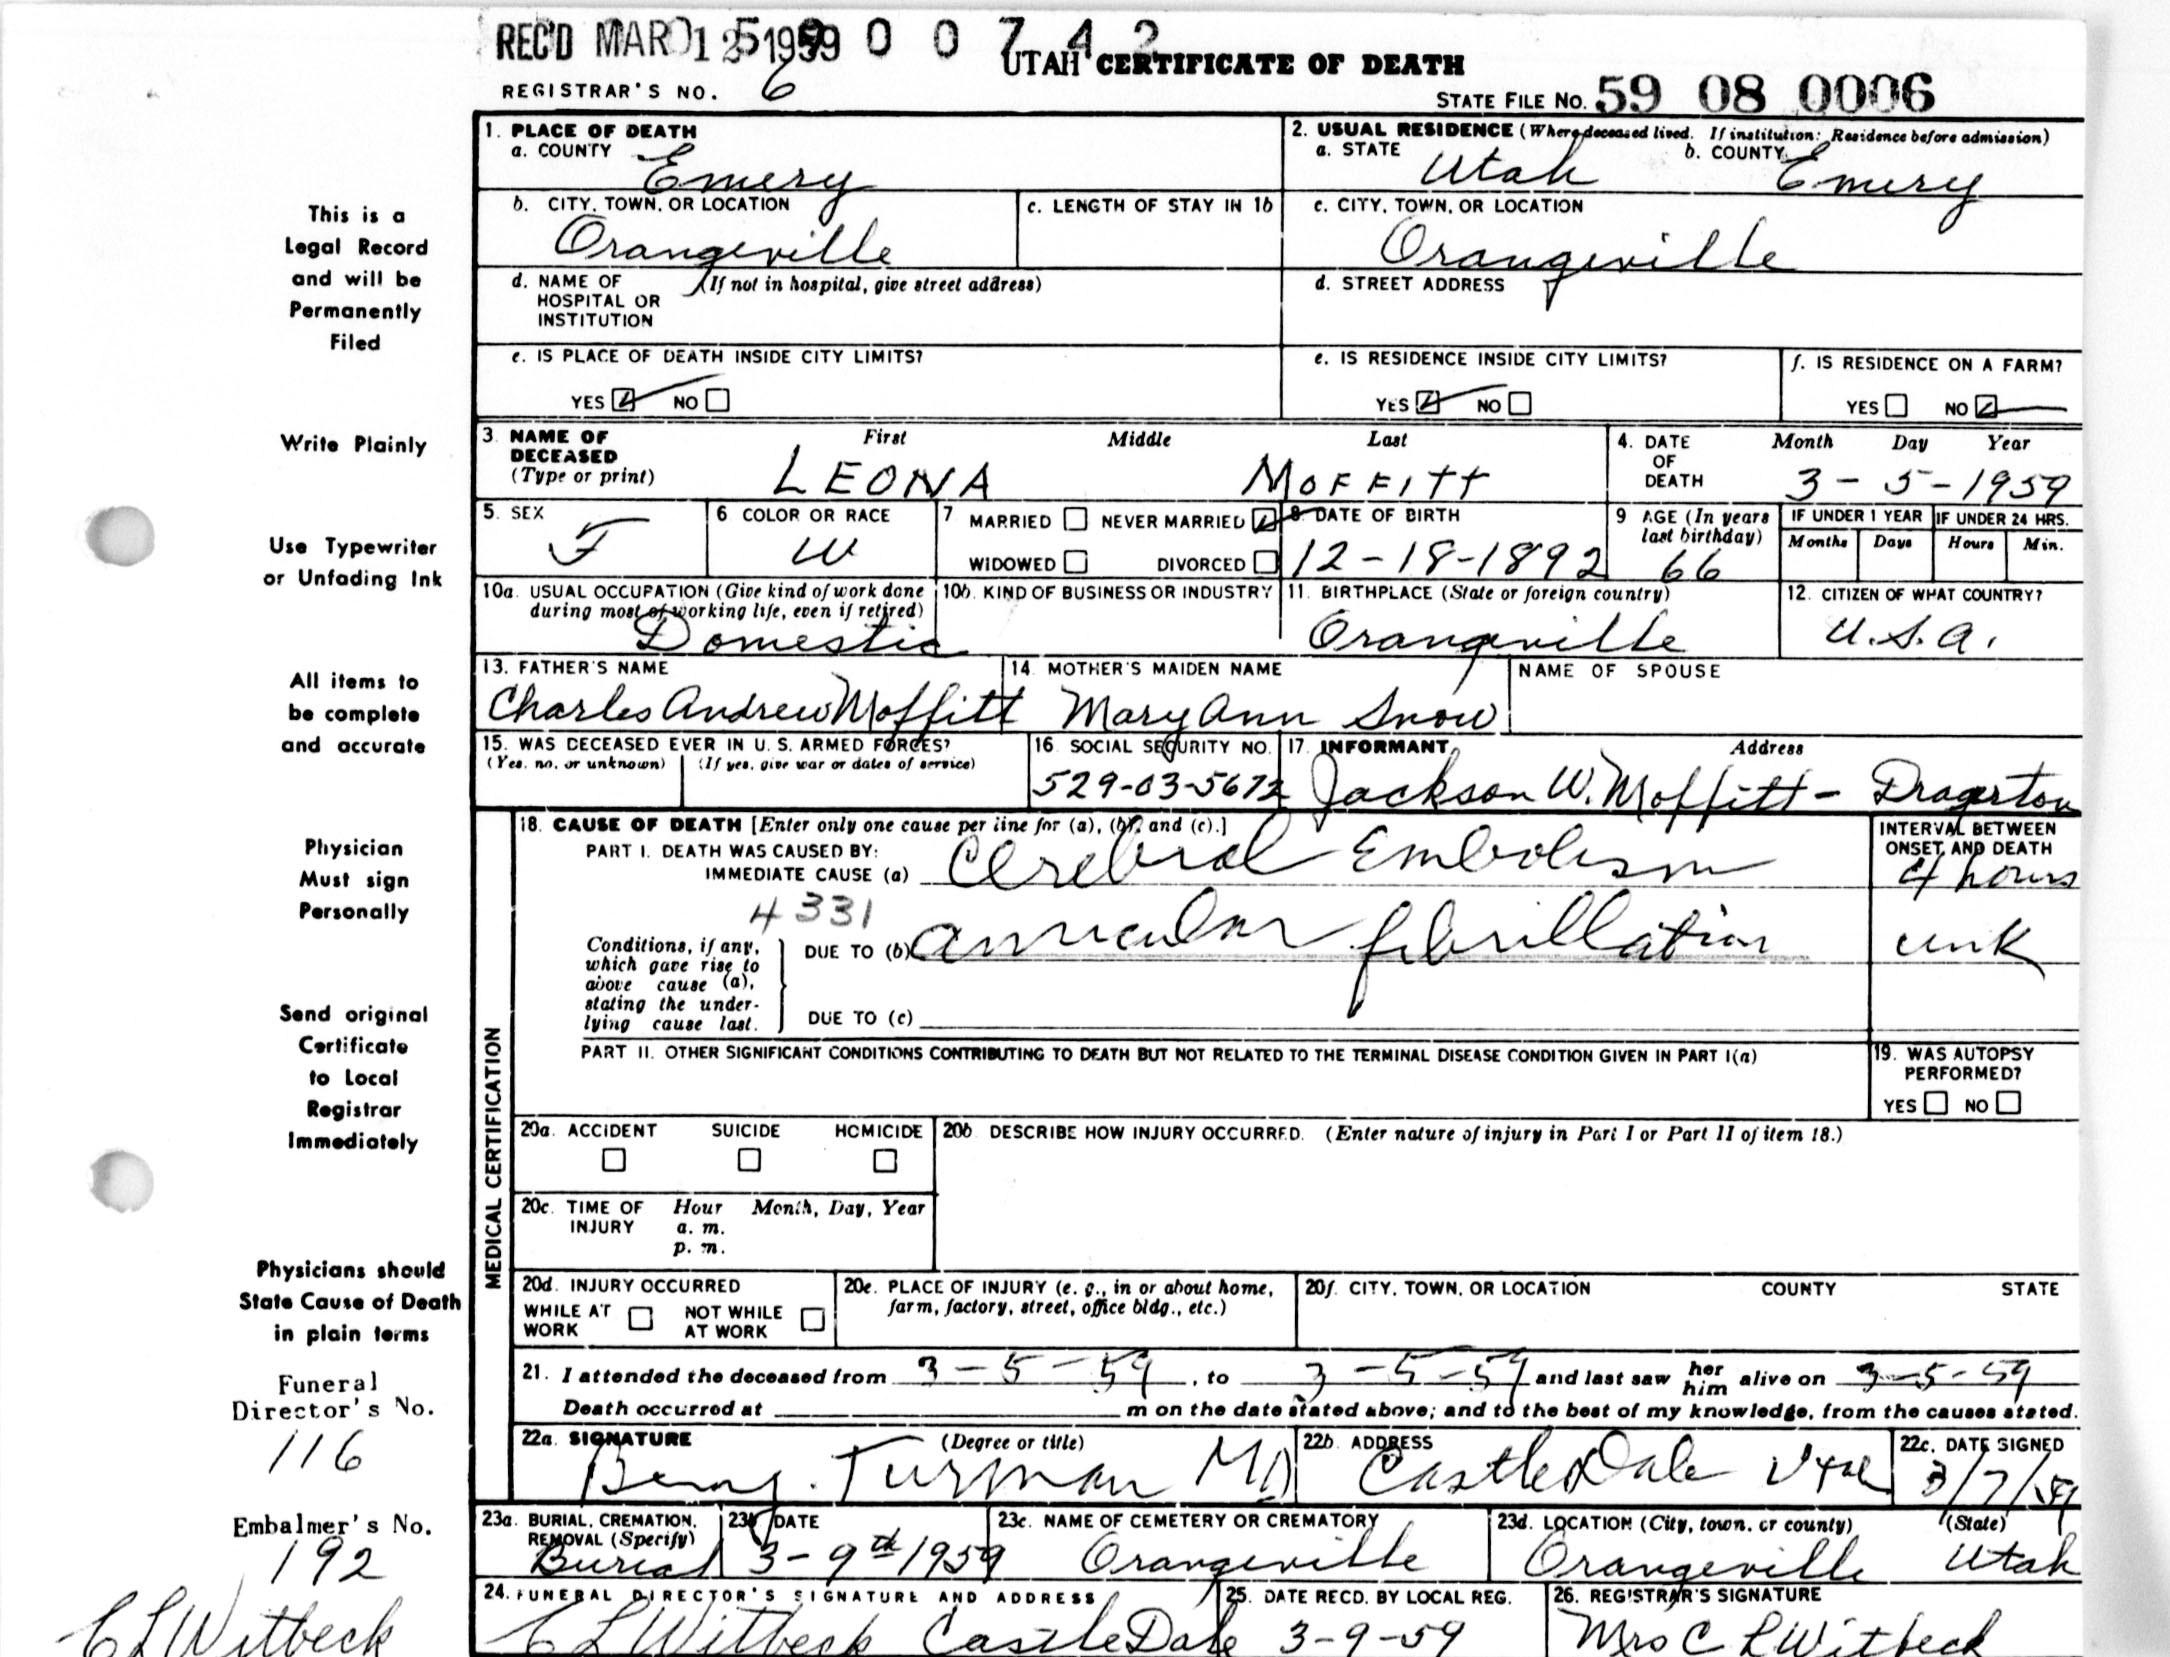 REC'D MAR 12 1959 0 0 7 4 2
UTAH CERTIFICATE OF DEATH
REGISTRAR'S NO. 6
STATE FILE NO. 59 08 0006
1. PLACE OF DEATH
a. COUNTY Emery
2. USUAL RESIDENCE (Where deceased lived. If institution: Residence before admission)
a. STATE Utah b. COUNTY Emery
b. CITY, TOWN, OR LOCATION Orangeville
c. LENGTH OF STAY IN 1b
c. CITY, TOWN, OR LOCATION Orangeville
d. NAME OF HOSPITAL OR INSTITUTION (If not in hospital, give street address)
d. STREET ADDRESS
e. IS PLACE OF DEATH INSIDE CITY LIMITS?
YES NO
e. IS RESIDENCE INSIDE CITY LIMITS?
YES NO
f. IS RESIDENCE ON A FARM?
YES NO
3. NAME OF DECEASED (Type or print) First Middle Last
LEONA MOFFITT
4. DATE OF DEATH Month Day Year
3 - 5 - 1959
5. SEX F
6 COLOR OR RACE W
7 MARRIED NEVER MARRIED
WIDOWED DIVORCED
8 DATE OF BIRTH 12-18-1892
9 AGE (In years last birthday) 66
IF UNDER 1 YEAR Months Days
IF UNDER 24 HRS. Hours Min.
10a. USUAL OCCUPATION (Give kind of work done during most of working life, even if retired)
Domestic
10b. KIND OF BUSINESS OR INDUSTRY
11. BIRTHPLACE (State or foreign country)
Orangeville
12. CITIZEN OF WHAT COUNTRY?
U.S.A.
13. FATHER'S NAME
Charles Andrew Moffitt
14 MOTHER'S MAIDEN NAME
Mary Ann Snow
NAME OF SPOUSE
15. WAS DECEASED EVER IN U. S. ARMED FORCES?
(Yes, no, or unknown) (If yes, give war or dates of service)
16 SOCIAL SECURITY NO.
529-03-5672
17 INFORMANT Address
Jackson W. Moffitt - Dragerton
MEDICAL CERTIFICATION
18. CAUSE OF DEATH [Enter only one cause per line for (a), (b), and (c).]
PART I. DEATH WAS CAUSED BY:
IMMEDIATE CAUSE (a) Cerebral Embolism
INTERVAL BETWEEN ONSET AND DEATH
4 hours
4331
Conditions, if any, which gave rise to above cause (a), stating the under-lying cause last.
DUE TO (b) auricular fibrillation unk
DUE TO (c)
PART II. OTHER SIGNIFICANT CONDITIONS CONTRIBUTING TO DEATH BUT NOT RELATED TO THE TERMINAL DISEASE CONDITION GIVEN IN PART I(a)
19. WAS AUTOPSY PERFORMED?
YES NO
20a. ACCIDENT SUICIDE HOMICIDE
20b DESCRIBE HOW INJURY OCCURRED. (Enter nature of injury in Part I or Part II of item 18.)
20c. TIME OF INJURY Hour a. m. p. m. Month, Day, Year
20d. INJURY OCCURRED
WHILE AT WORK NOT WHILE AT WORK
20e. PLACE OF INJURY (e. g., in or about home, farm, factory, street, office bldg., etc.)
20f. CITY, TOWN, OR LOCATION COUNTY STATE
21. I attended the deceased from 3-5-59, to 3-5-59 and last saw her him alive on 3-5-59
Death occurred at m on the date stated above; and to the best of my knowledge, from the causes stated.
22a. SIGNATURE (Degree or title)
Benj. Turman MD
22b. ADDRESS
Castle Dale Utah
22c. DATE SIGNED
3/7/59
23a. BURIAL, CREMATION, REMOVAL (Specify)
Burial
23b DATE
3-9th 1959
23c. NAME OF CEMETERY OR CREMATORY
Orangeville
23d. LOCATION (City, town, or county) (State)
Orangeville Utah
24. FUNERAL DIRECTOR'S SIGNATURE AND ADDRESS
C L Witbeck Castle Dale
25. DATE RECD. BY LOCAL REG.
3-9-59
26. REGISTRAR'S SIGNATURE
Mrs C L Witbeck
This is a
Legal Record
and will be
Permanently
Filed
Write Plainly
Use Typewriter
or Unfading Ink
All items to
be complete
and accurate
Physician
Must sign
Personally
Send original
Certificate
to Local
Registrar
Immediately
Physicians should
State Cause of Death
in plain terms
Funeral
Director's No.
116
Embalmer's No.
192
C L Witbeck